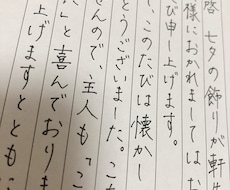 啓 七夕の飾りが軒先
様におかれましてはお
び申し上げます。
て、このたびは懐かし
とうございました。こち
せんので、主人も「こ
た」と喜んでおりま
上げますととも